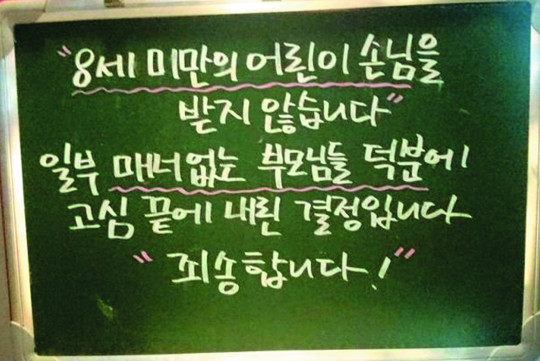 "8세 미만의 어린이 손님을
받지 않습니다"
일부 매너없는 부모님들 덕분에
고심 끝에 내린 결정입니다
"죄송합니다!"